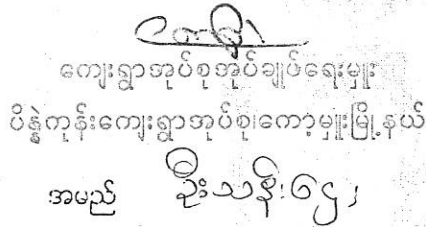 ကျေးရွာအုပ်စုအုပ်ချုပ်ရေးမှူး
ပိန္နဲကုန်းကျေးရွာအုပ်စု၊ကော့မှူးမြို့နယ်
အမည် ဦးသန်းဌေး